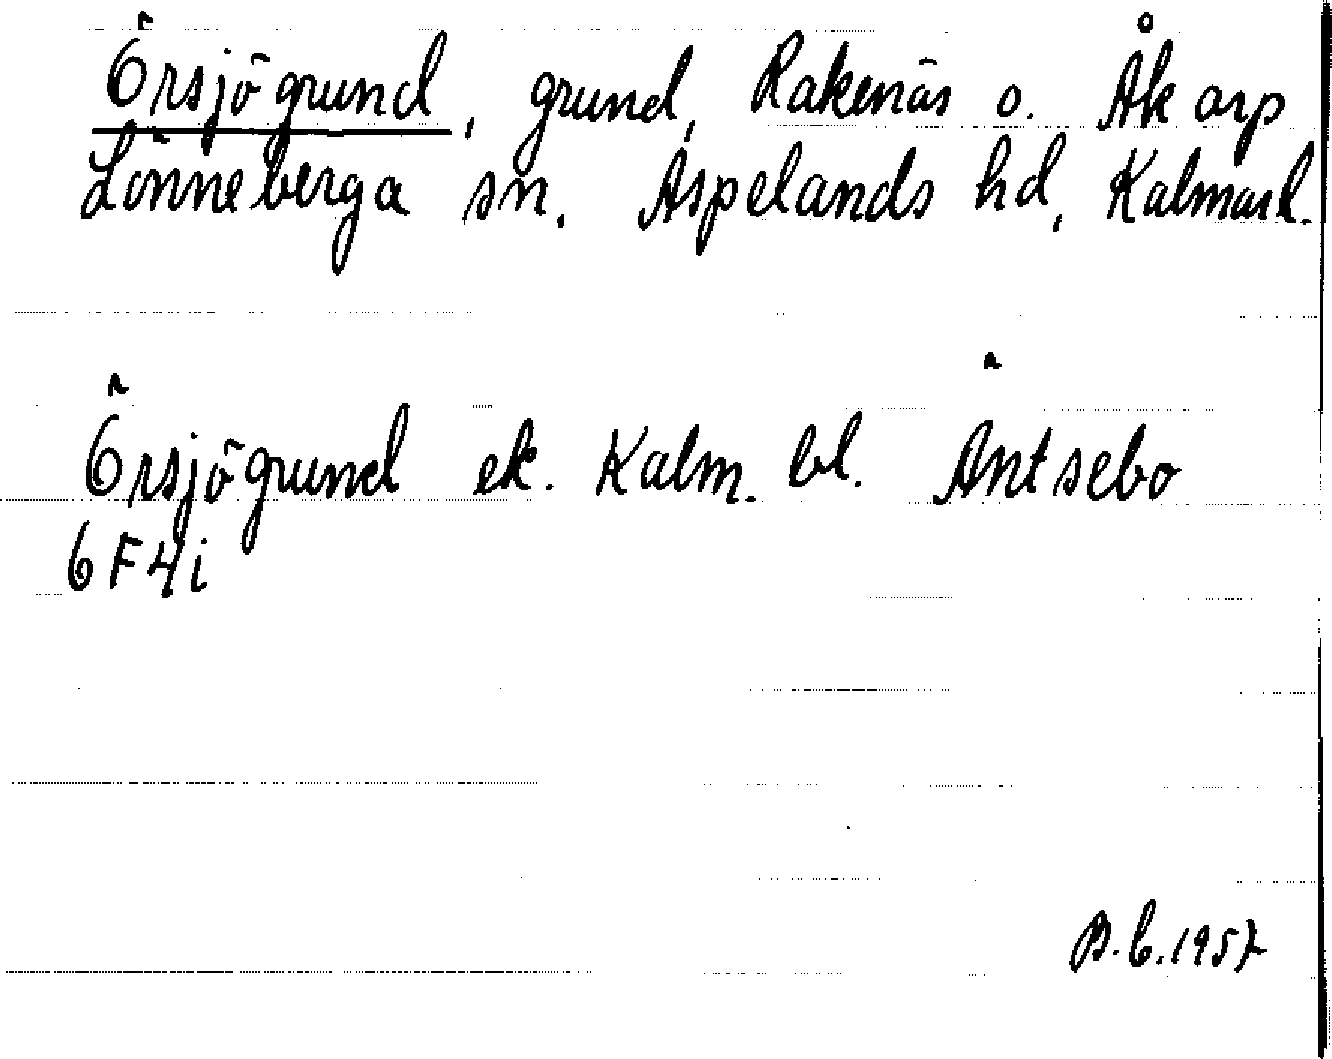 Örsjögrund, grund, Rakenäs o. Åkarp
Lönneberga sn. Aspelands hd, Kalmarl.
Örsjögrund ek. Kalm. bl. Äntsebo
6 F 4i
B.C. 1957